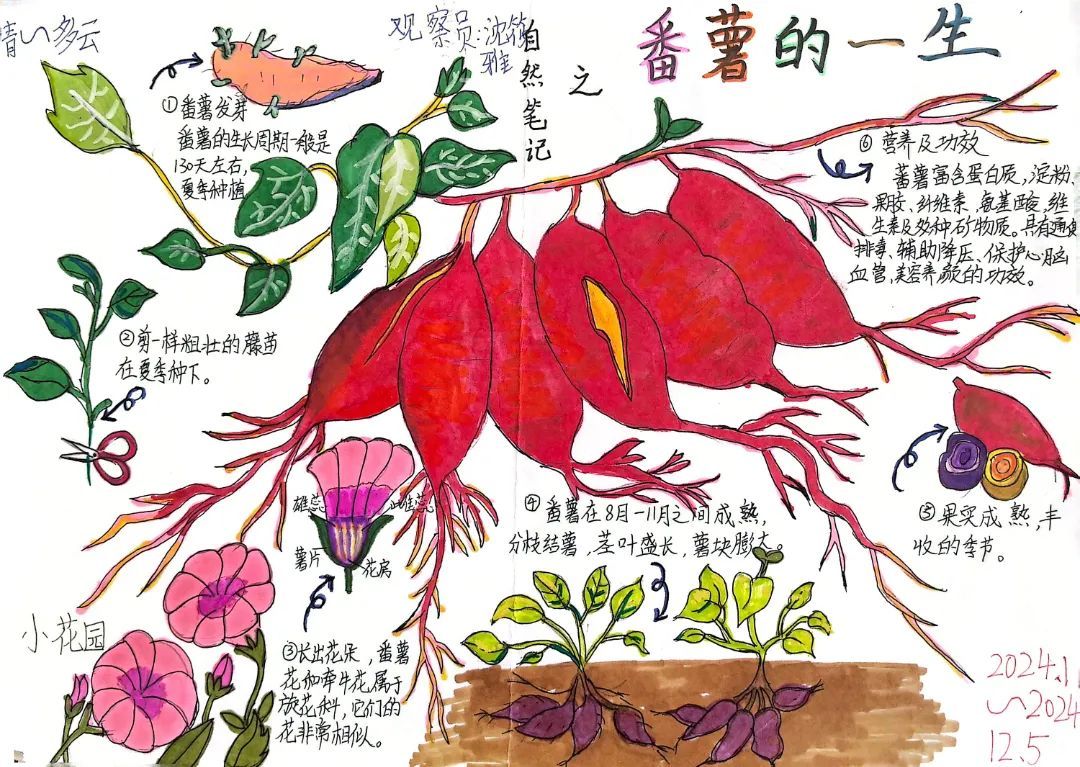 晴~多云
观察员:沈筱
雅
自然笔记
之
番薯的一生
①番薯发芽
番薯的生长周期一般是
130天左右,
夏季种植
⑥营养及功效
番薯富含蛋白质,淀粉、
果胶、纤维素、氨基酸、维
生素及多种矿物质。具有通便
排毒、辅助降压、保护心脑
血管,美容养颜的功效。
②剪一样粗壮的藤苗
在夏季种下。
雄蕊
雌蕊
薯片
花房
④番薯在8月-11月之间成熟,
分枝结薯,茎叶盛长,薯块膨大。
⑤果实成熟,丰
收的季节。
小花园
③长出花朵,番薯
花和牵牛花属于
旋花科,它们的
花非常相似。
2024.11
~2024
12.5